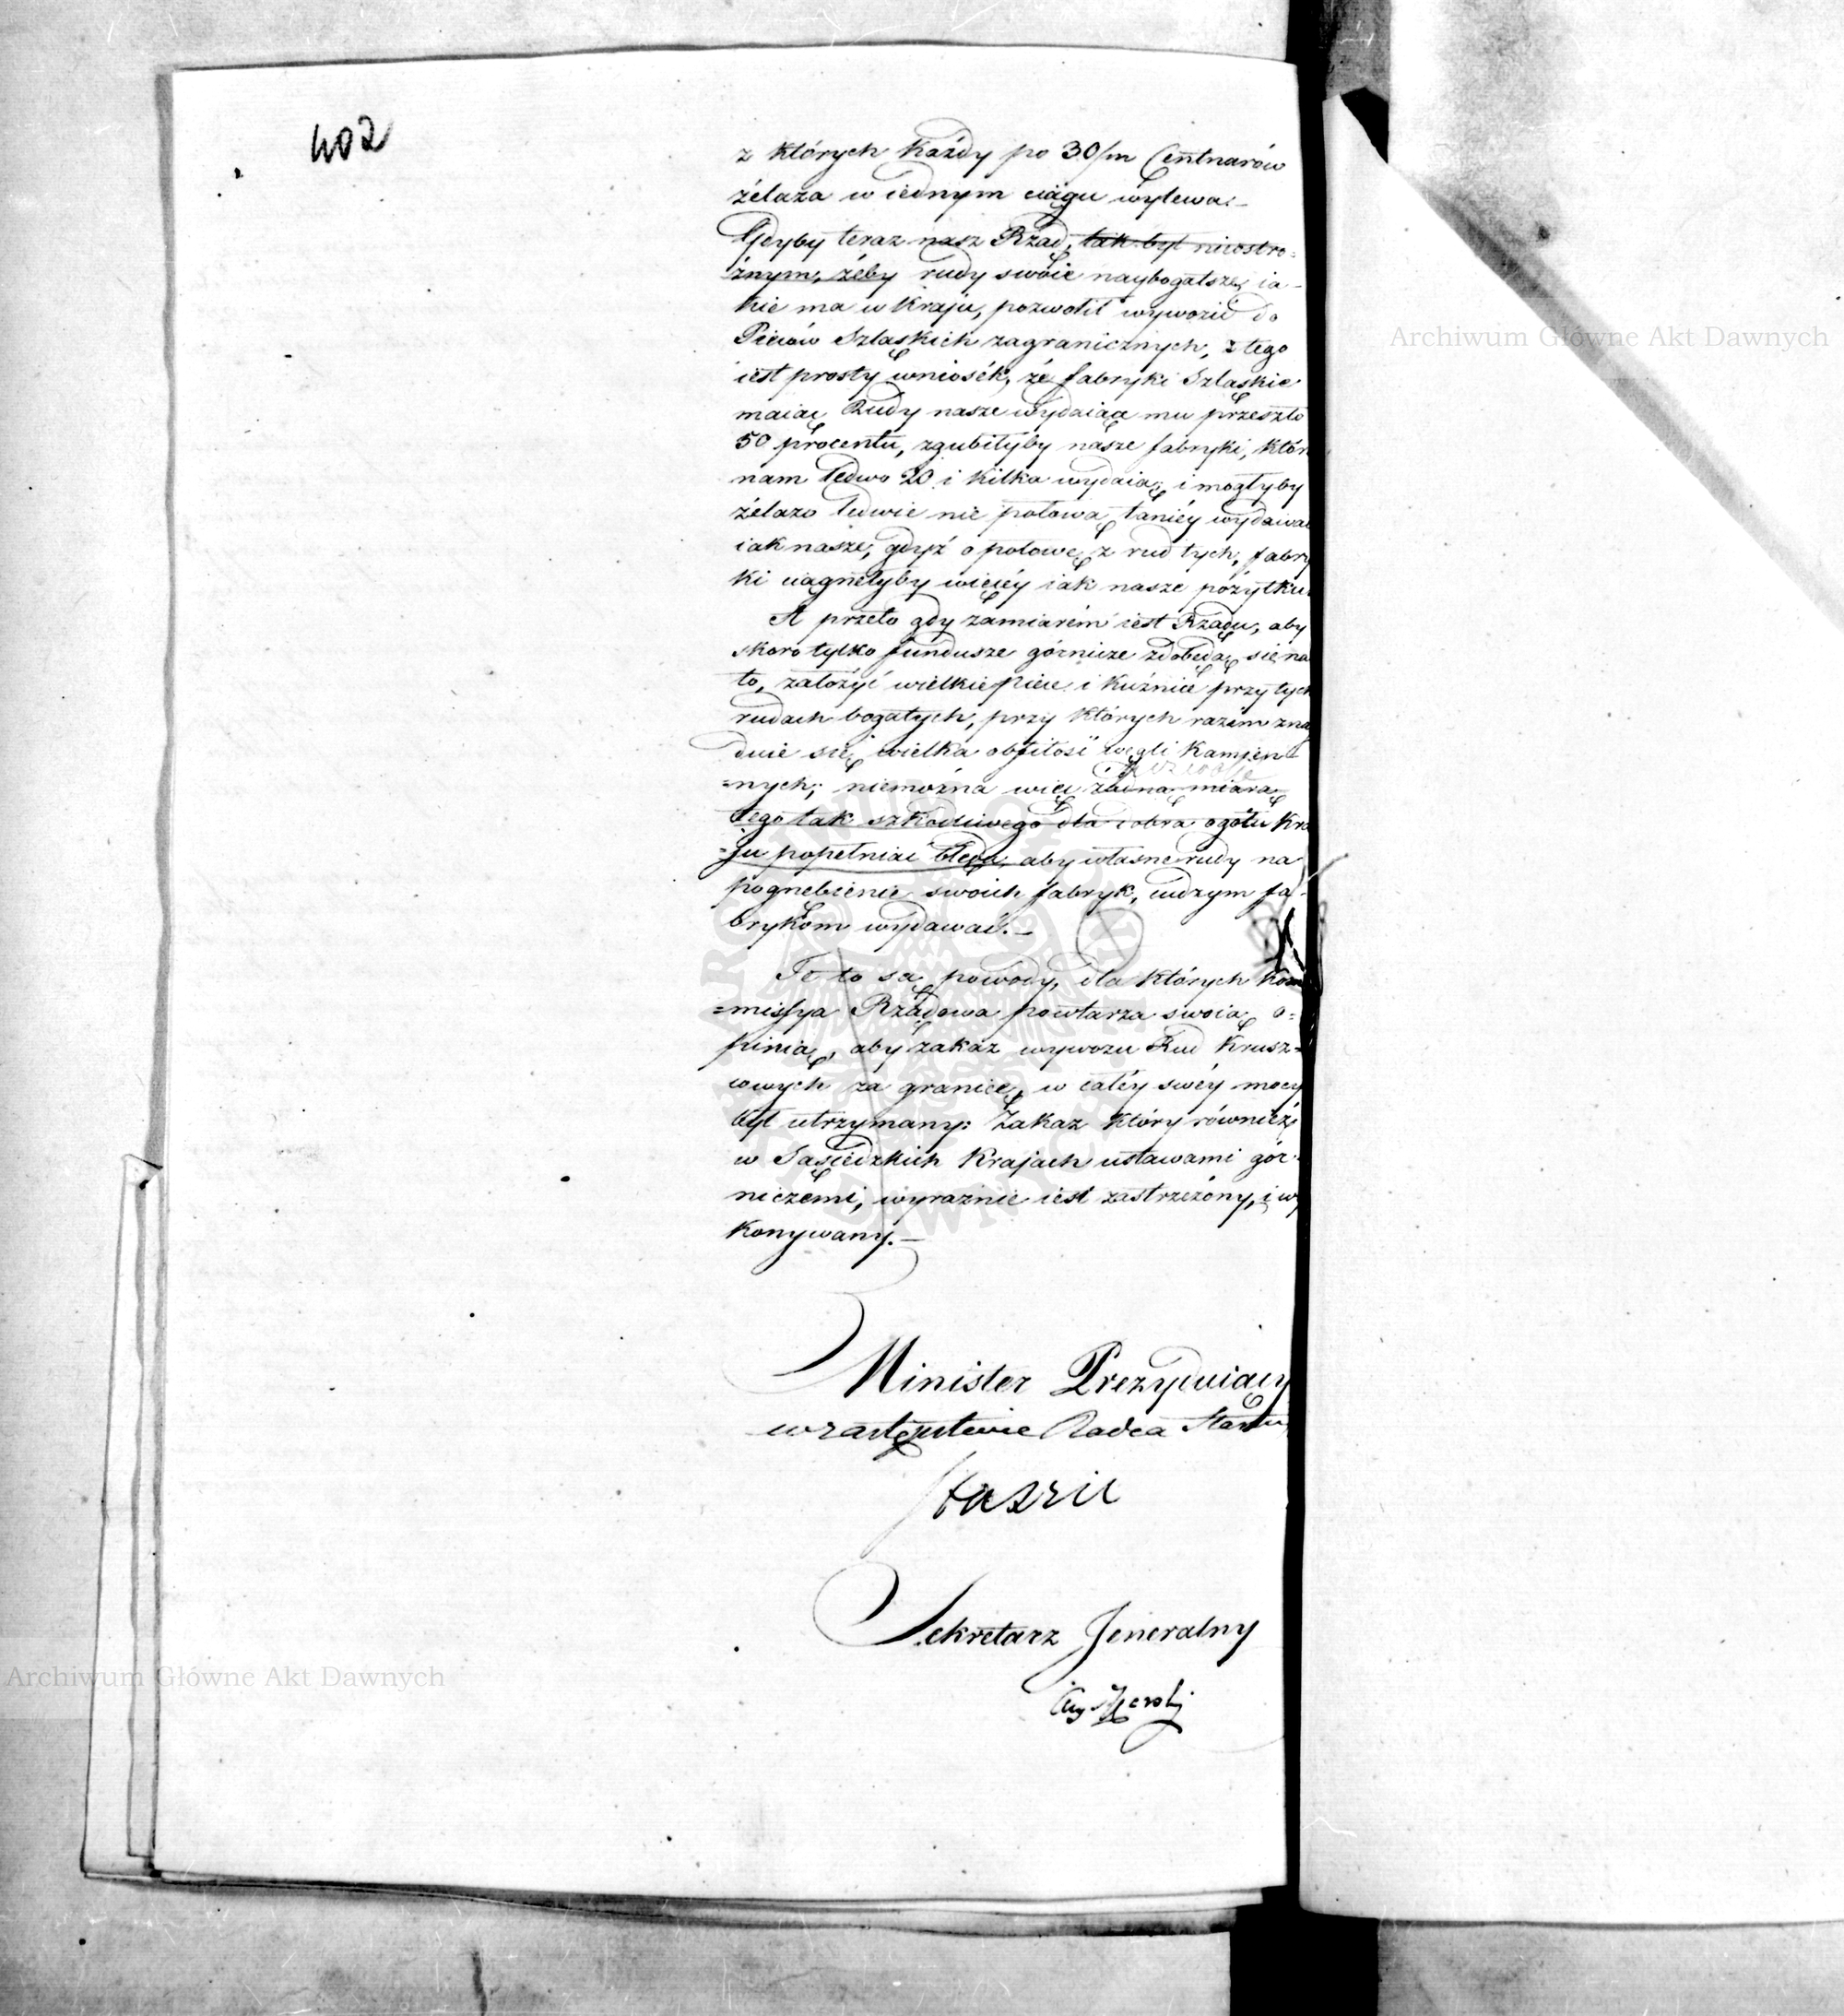 402
z których każdy po 30/m Centnarów
żelaza w iednym ciągu wylewa.–
Gdyby teraz nasz Rząd, tak był nieostro=
żnym, żeby rudy swoie naybogatsze, ia-
kie ma w kraju, pozwolił wywozić do
Pieców Szląskich zagranicznych, z tego
iest prosty wniosek, że fabryki Szląskie
maiąc Rudy nasze wydaiące mu przeszło
50 procentu, zgubiłyby nasze fabryki, któr
nam ledwo 20 i kilka wydaią, i mogłyby
żelazo ledwie nie połową taniéy wydawać
iak nasze, gdyż o połowę z rud tych, fabry
ki ciągnęłyby więcéy iak nasze pożytku
A przeto gdy zamiarem iest Rządu, aby
skoro tylko fundusze górnicze zdobędą się na
to, założyć wielkie piece i kuźnice przy tych
rudach bogatych, przy których razem zna
duie się wielka obfitość węgli kamien
=nych; niemożna więc żadną miarą
tego tak szkodliwego dla dobra ogółu Kra
=ju popełniać błędu, aby własne rudy na
pognębienie swoich fabryk, cudzym fa-
brykom wydawać.–
Te to są powody, dla których Kom
=missya Rządowa powtarza swoią o=
pinią, aby zakaz wywozu Rud Krusz=
cowych za granicę, w całéy swéy mocy
był utrzymany: Zakaz który również
w Sąsiedzkich Krajach ustawami gór-
niczemi, wyraźnie iest zastrzeżony, i wy
konywany.–
Minister Prezyduiący
w zastępstwie Radca Stanu
Staszic
Sekretarz Jeneralny
Archiwum Główne Akt Dawnych
Archiwum Główne Akt Dawnych